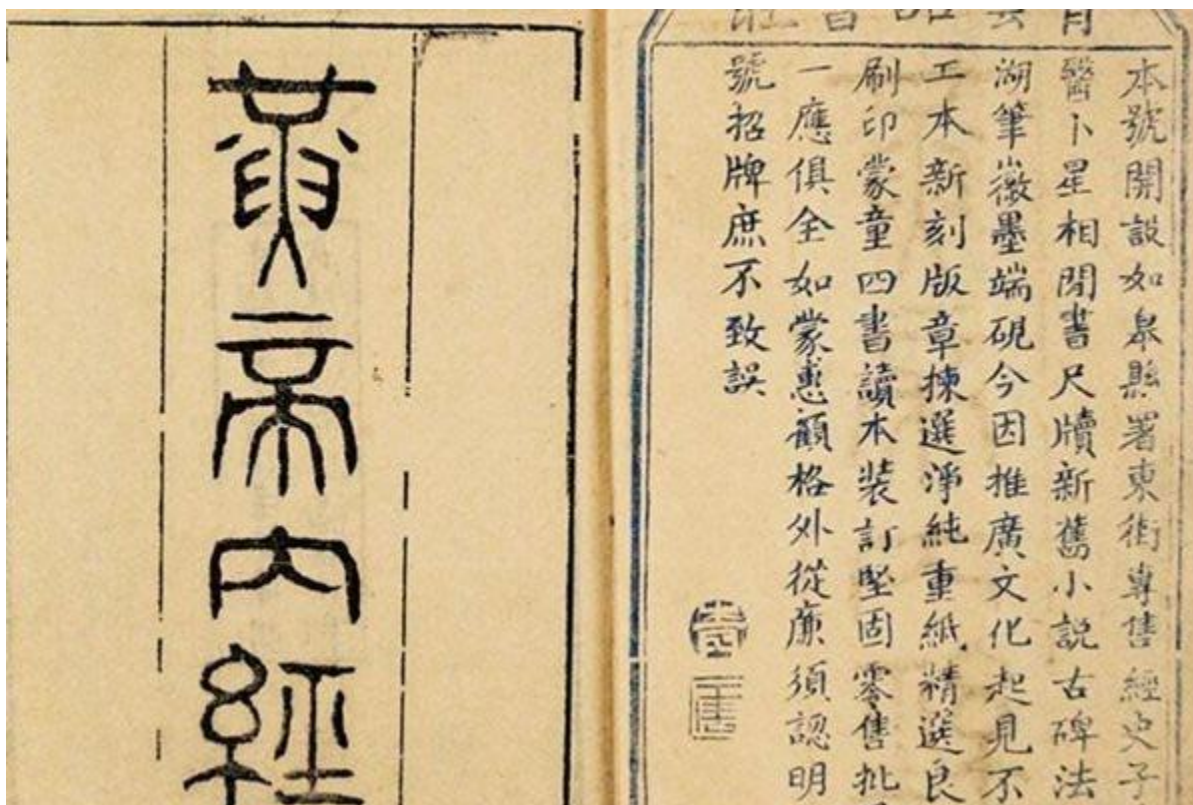 本號開設如皋縣署東街專售經史子
醫卜星相閒書尺牘新舊小説古碑法
湖筆徽墨端硯今因推廣文化起見不
工本新刻版章揀選淨純重紙精選良
刷印蒙童四書讀本装訂堅固零售批
一應俱全如蒙惠顧格外從廉須認明
號招牌庶不致誤
黃帝內經